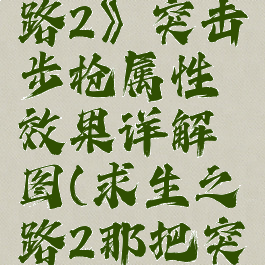 路2》突击
步枪属性
效果详解
图(求生之
路2那把突